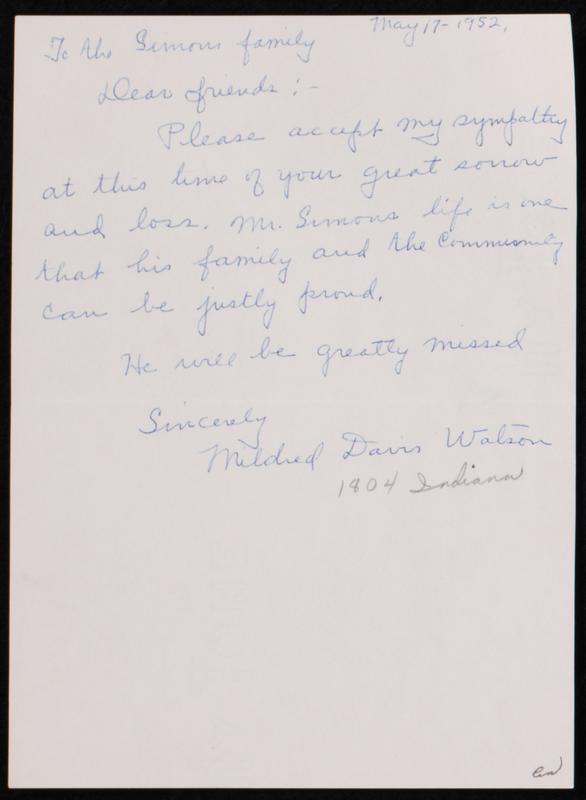 May 17 - 1952.
To the Simons family
Dear friends :-
Please accept my sympathy
at this time of your great sorrow
and loss. Mr. Simons life is one
that his family and the Community
can be justly proud.
He will be greatly missed
Sincerely
Mildred Davis Watson
1804 Indiana